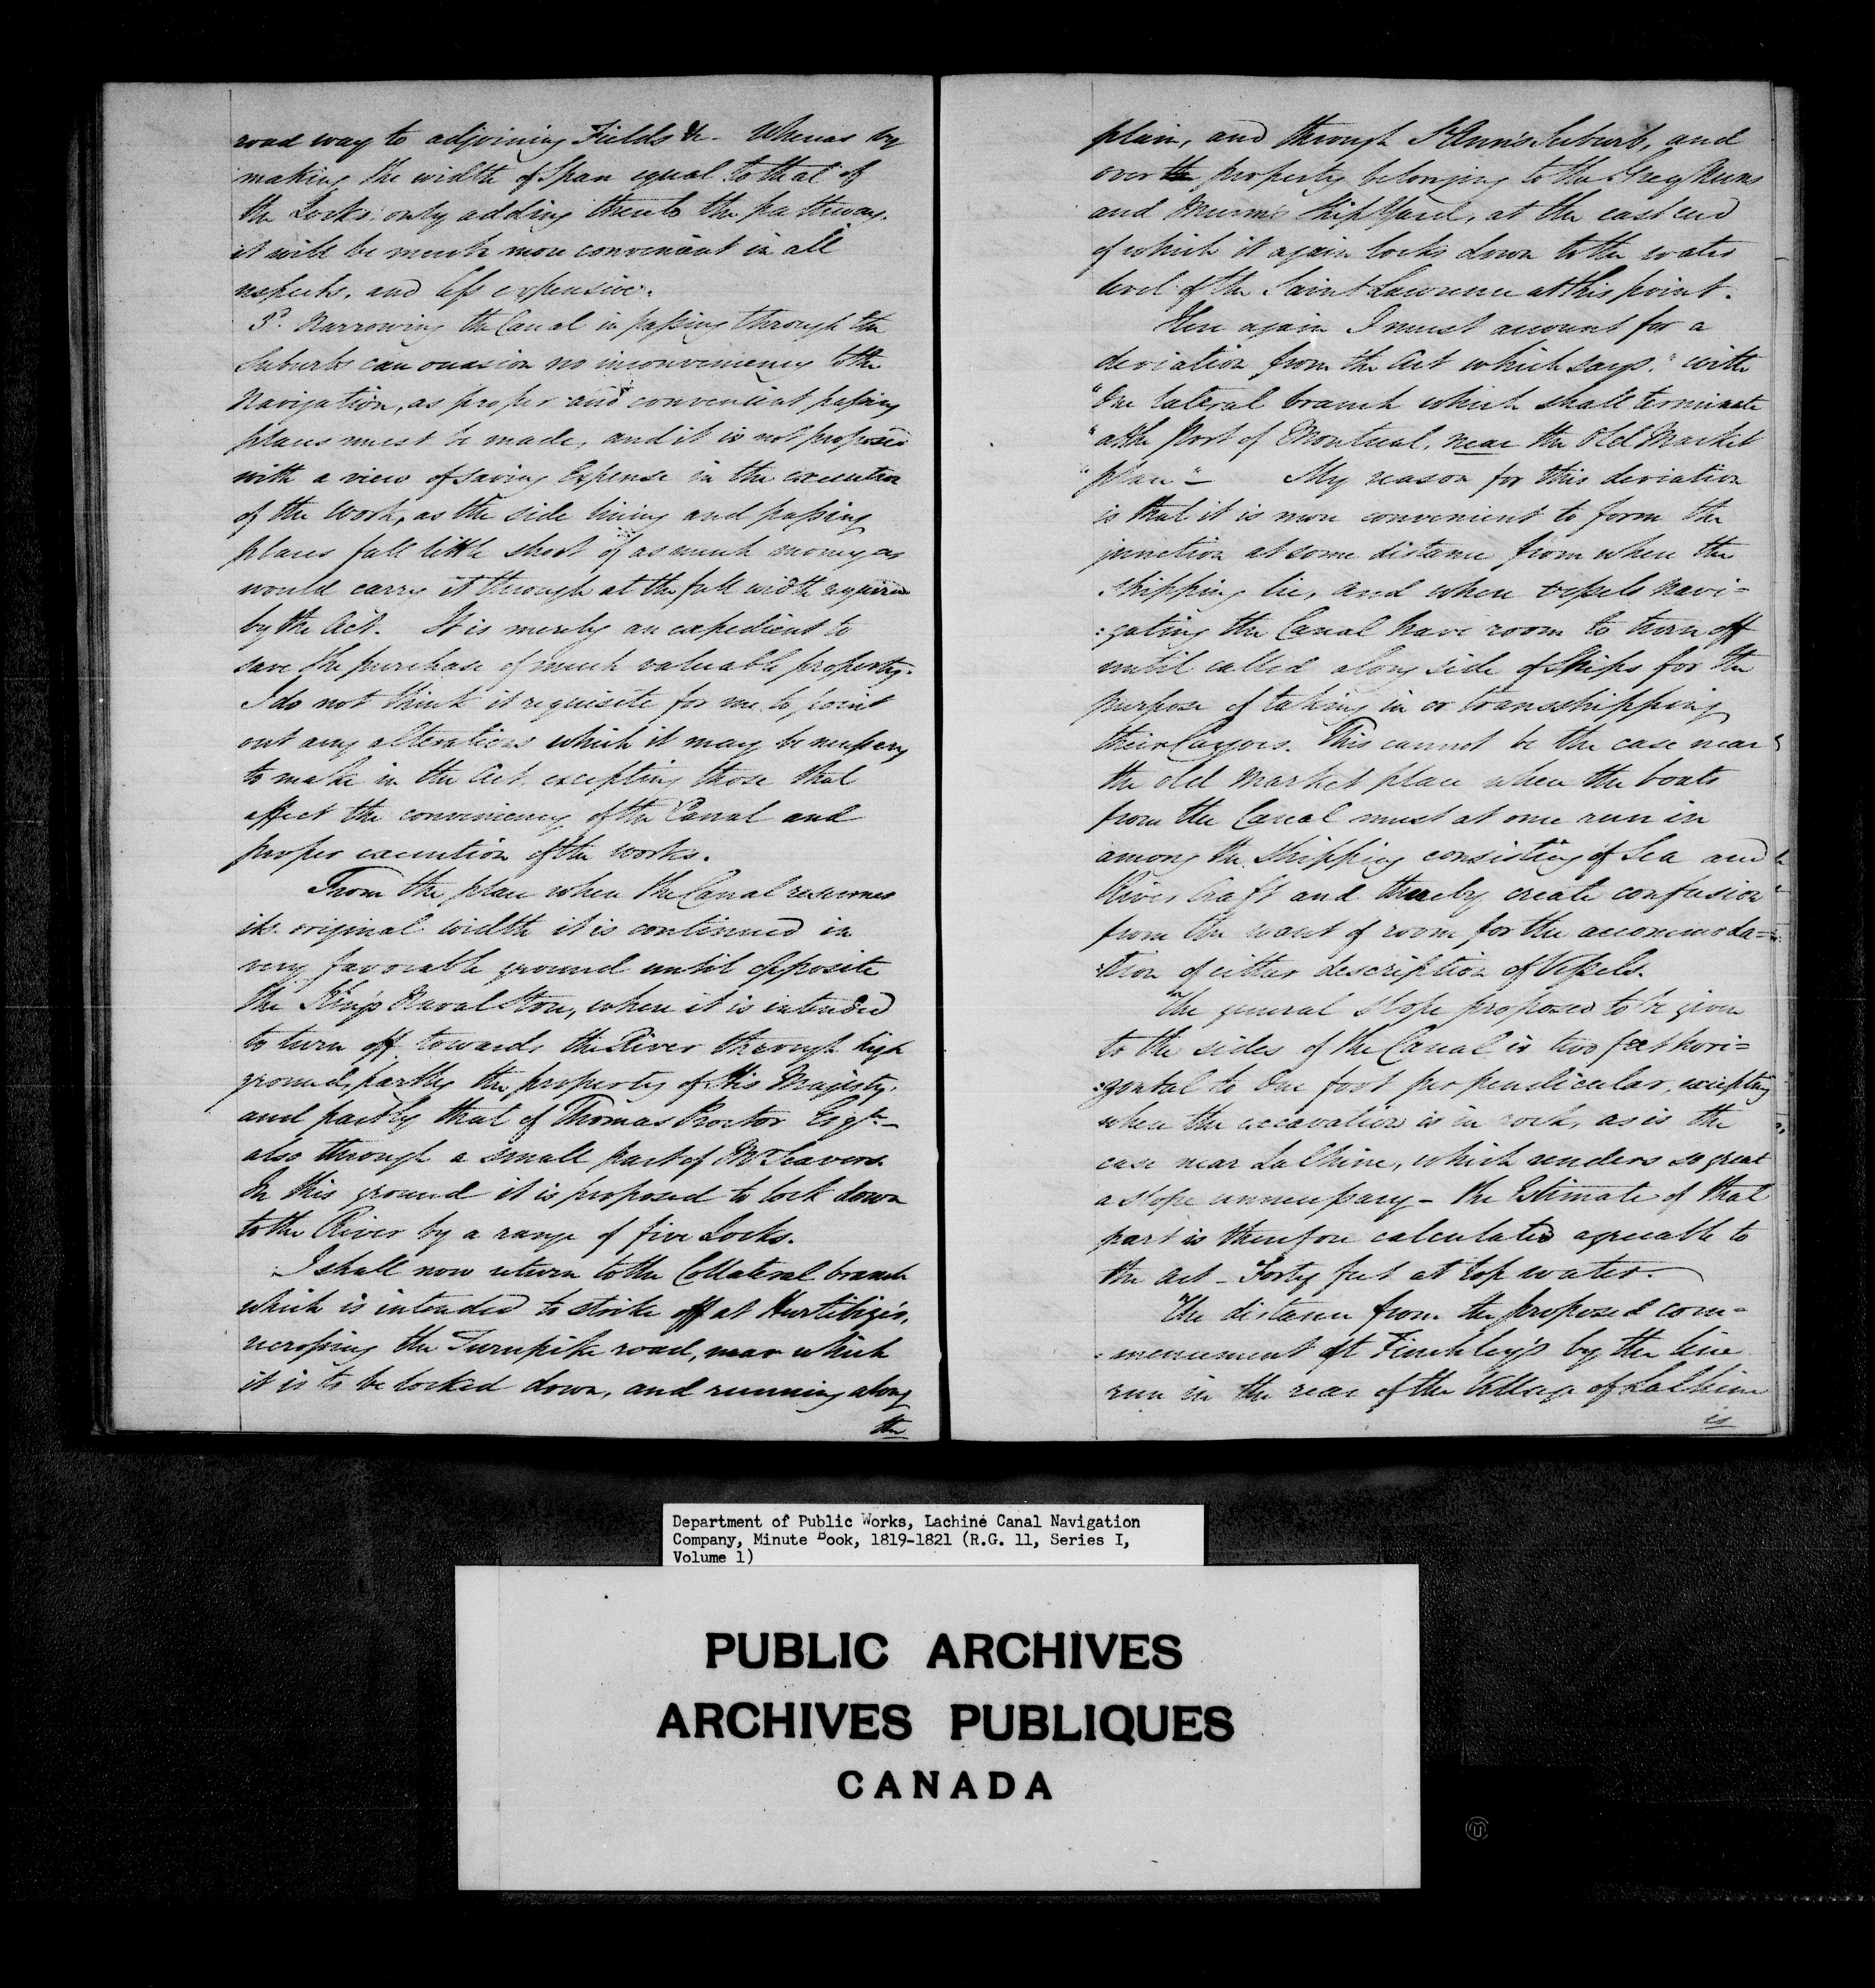 road way to adjoining Fields &c. Whereas by
making the width of Span equal to that of
the Locks only adding thereto the pathway.
it will be much more convenient in all
respects, and less expensive.
3d. Narrowing the Canal in passing through the
Suburbs can occasion no inconveniency to the
Navigation, as proper and convenient passing
places must be made, and it is not proposed
with a view of saving Expense in the execution
of the Work, as the side lining and passing
places fall little short of as much money as
would carry it through at the full width required
by the Act. It is merely an expedient to
save the purchase of much valuable property.
I do not think it requisite for me to point
out any alterations which it may be necessary
to make in the Act excepting those that
affect the conveniency of the Canal and
proper execution of the works.
From the place where the Canal resumes
its original width it is continued in
very favorable ground until opposite
the King's Naval Store, where it is intended
to turn off towards the River through high
ground, partly the property of His Majesty,
and partly that of Thomas Proctor Esqr.
also through a small part of Mr Seavers.
In this ground it is proposed to lock down
to the River by a range of five Locks.
I shall now return to the Collateral branch
which is intended to strike off at Hurtibize's,
recrossing the Turnpike road, near which
it is to be locked down, and running along
the
plain, and through St Ann's Suburb, and
over the property belonging to the Grey Nuns
and Munn's Ship Yard, at the east end
of which it again locks down to the water
level of the Saint Lawrence at this point.
Here again I must account for a
deviation from the Act which says, "with
"One lateral branch which shall terminate
"at the Port of Montreal, near the Old Market
"place"— My reason for this deviation
is that it is more convenient to form the
junction at some distance from where the
shipping lie, and where vessels navi=
:gating the Canal have room to turn off
until called along side of Ships for the
purpose of taking in or transshipping
their Cargoes. This cannot be the case near
the old Market place where the boats
from the Canal must at once run in
among the Shipping consisting of Sea and
River Craft and thereby create confusion
from the want of room for the accommoda=
:tion of either description of Vessels.
The general slope proposed to be given
to the sides of the Canal is two feet hori=
:zontal to One foot perpendicular, excepting
where the excavation is in rock, as is the
case near LaChine, which renders so great
a slope unnecessary - the Estimate of that
part is therefore calculated agreeable to
the Act - Forty feet at top water.
The distance from the proposed com=
:mencement at Finchley's by the line
run in the rear of the Village of LaChine
is
Department of Public Works, Lachine Canal Navigation
Company, Minute Book, 1819-1821 (R.G. 11, Series I,
Volume 1)
PUBLIC ARCHIVES
ARCHIVES PUBLIQUES
CANADA